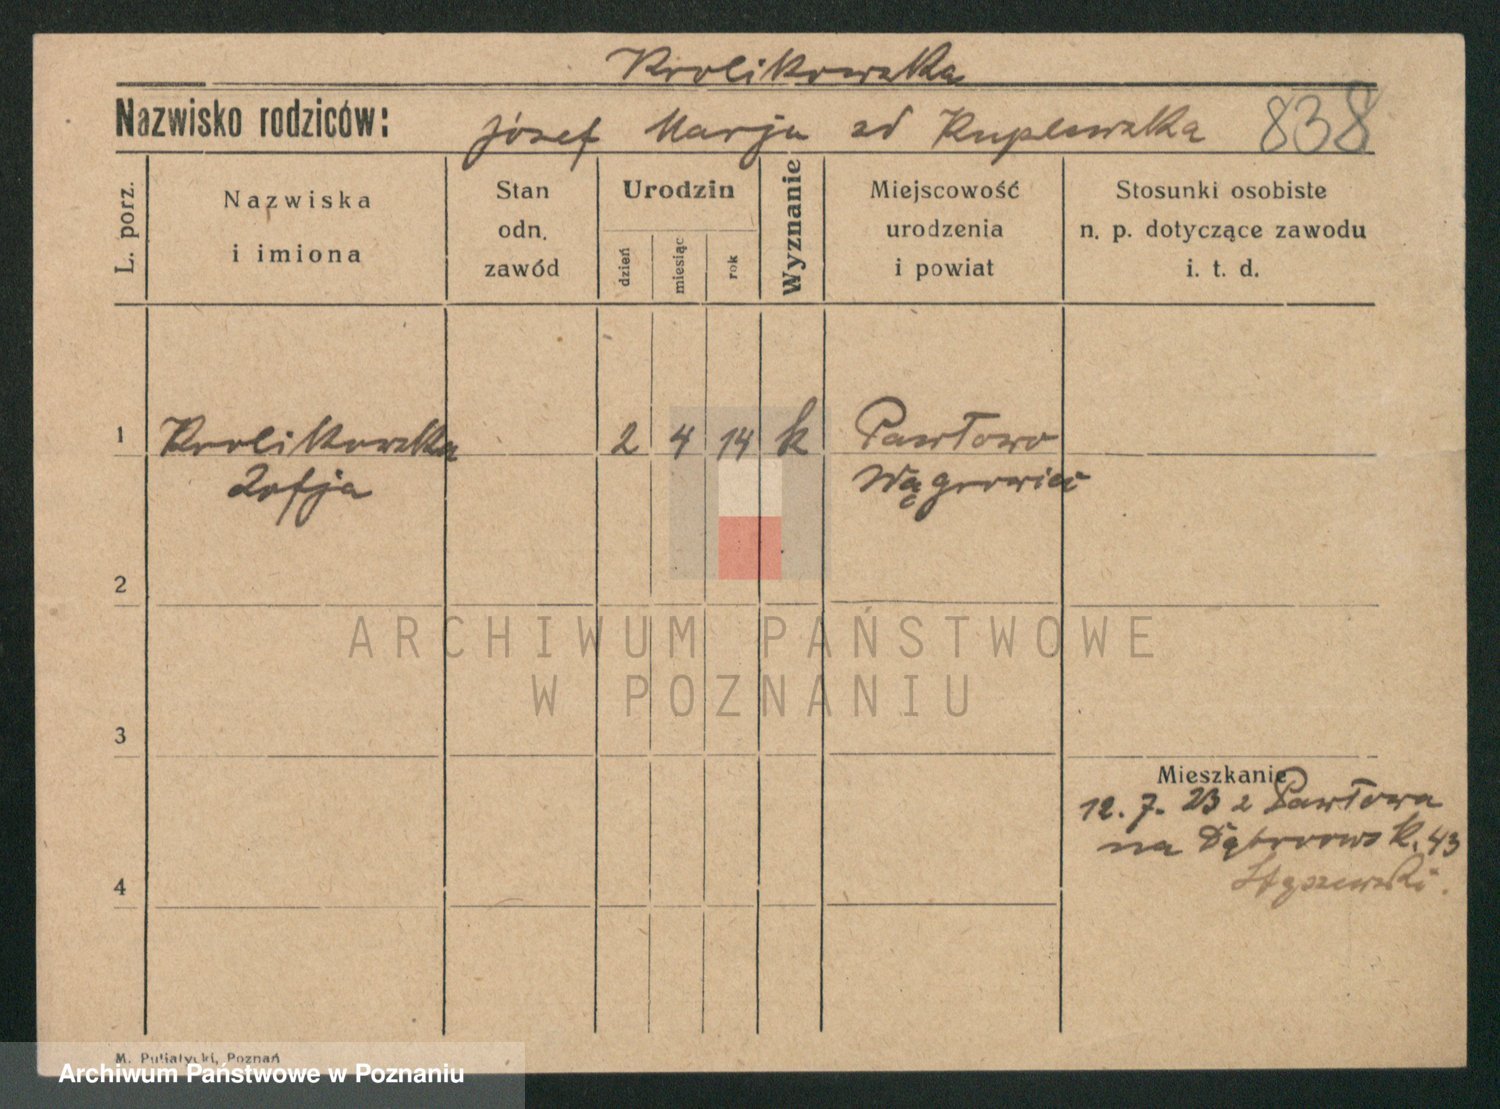 Krolikowska
Nazwisko rodziców: Józef Marja zd Kuplewska 838
L. porz.
Nazwiska
i imiona
Stan
odn.
zawód
Urodzin
dzień
miesiąc
rok
Wyznanie
Miejscowość
urodzenia
i powiat
Stosunki osobiste
n. p. dotyczące zawodu
i. t. d.
1 Krolikowska 2 4 14 k Pawłowo
Zofja Wągrowiec
2
ARCHIWUM PAŃSTWOWE
W POZNANIU
3
Mieszkanie
12. 7. 23 z Pawłowa
na Dąbrowsk. 43
4
M. Putiatycki, Poznań
Archiwum Państwowe w Poznaniu